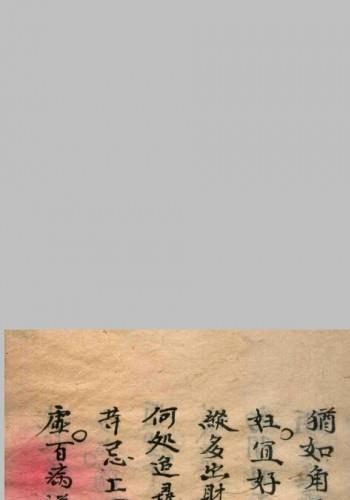 猶如角
妊。宜好
縱多出財
何処追尋
苛忌工
虛。百病